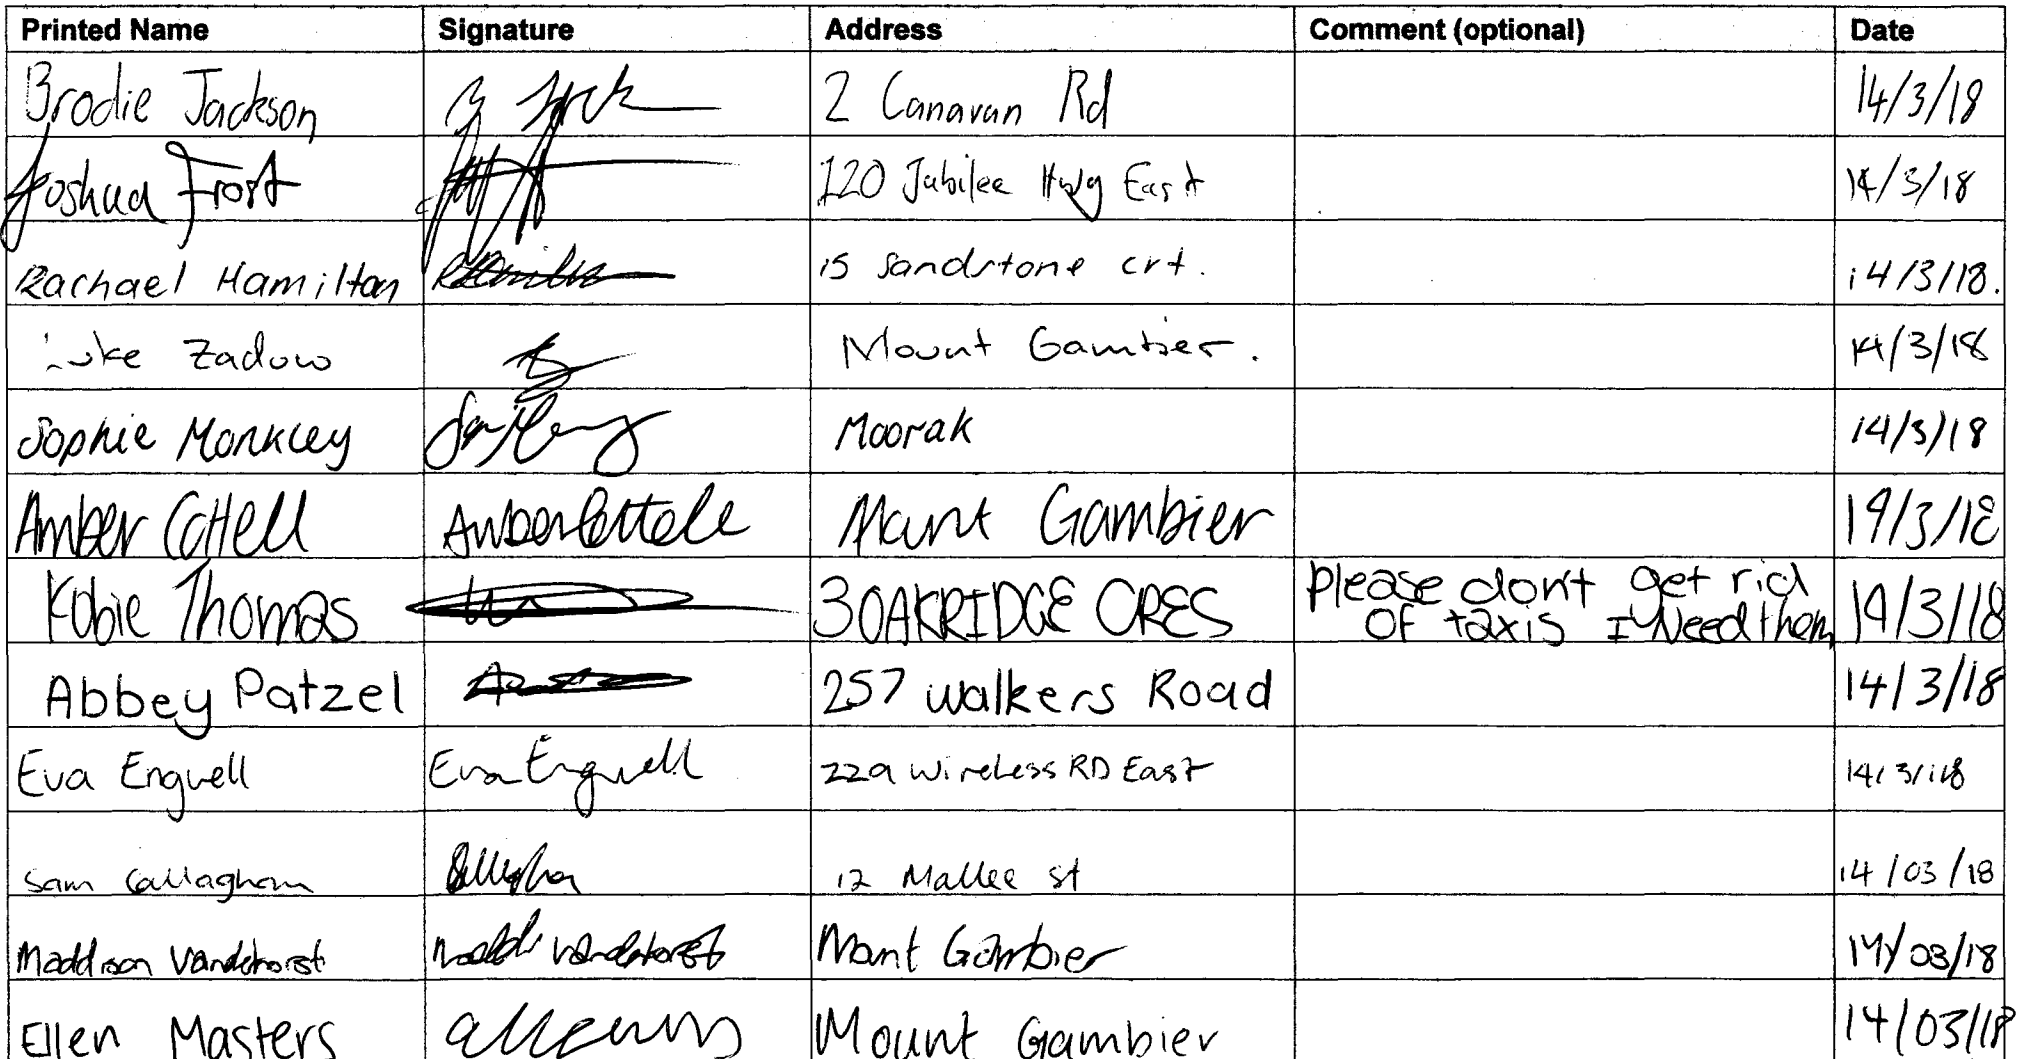 Printed Name Signature Address Comment (optional) Date
Brodie Jackson 2 Canavan Rd 14/3/18
Joshua Frost 120 Jubilee Hwy East 14/3/18
Rachael Hamilton 15 sandstone crt. 14/3/18.
Zadow Mount Gambier. 14/3/18
Sophie Monkley Moorak 14/3/18
Amber Cottell Mount Gambier 14/3/18
Kobie Thomas 3 OAKRIDGE CRES Please don't get rid 14/3/18
OF taxis I Need them
Abbey Patzel 257 walkers Road 14/3/18
Eva Engwell Eva Engwell 22a Wireless RD East 14/3/18
Sam Callaghan 12 Mallee st 14/03/18
Maddison Vandehorst Mount Gambier 14/03/18
Ellen Masters Mount Gambier 14/03/18